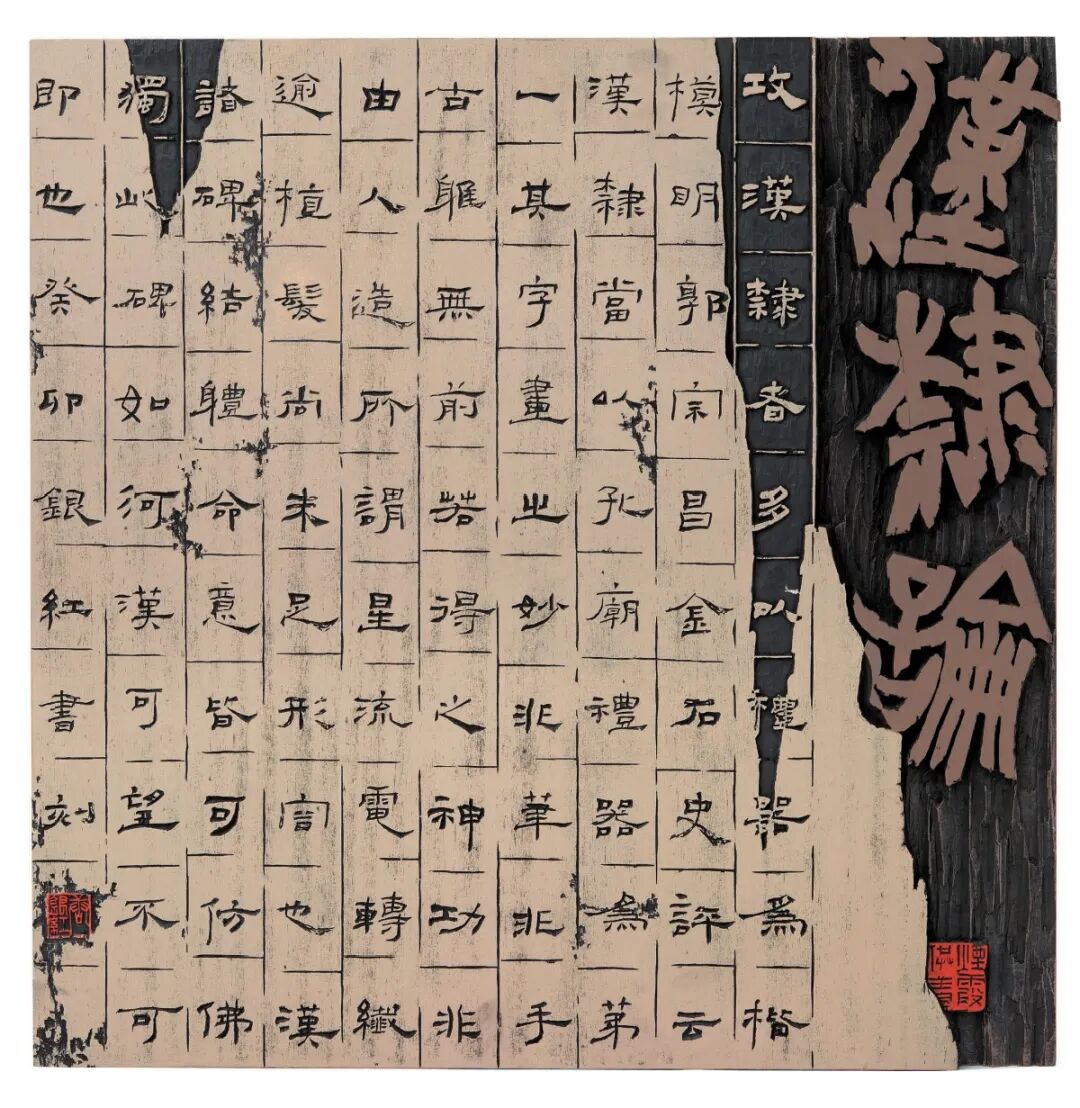 漢隸論
攻漢隸者多以禮器爲楷
模明郭宗昌金石史評云
漢隸當以孔廟禮器爲第
一其字畫之妙非筆非手
古雅無前若得之神功非
由人造所謂星流電轉纖
逾植髮尚未足形容也漢
諸碑結體命意皆可仿佛
獨此碑如河漢可望不可
即也癸卯銀紅書刻
煙霞供養